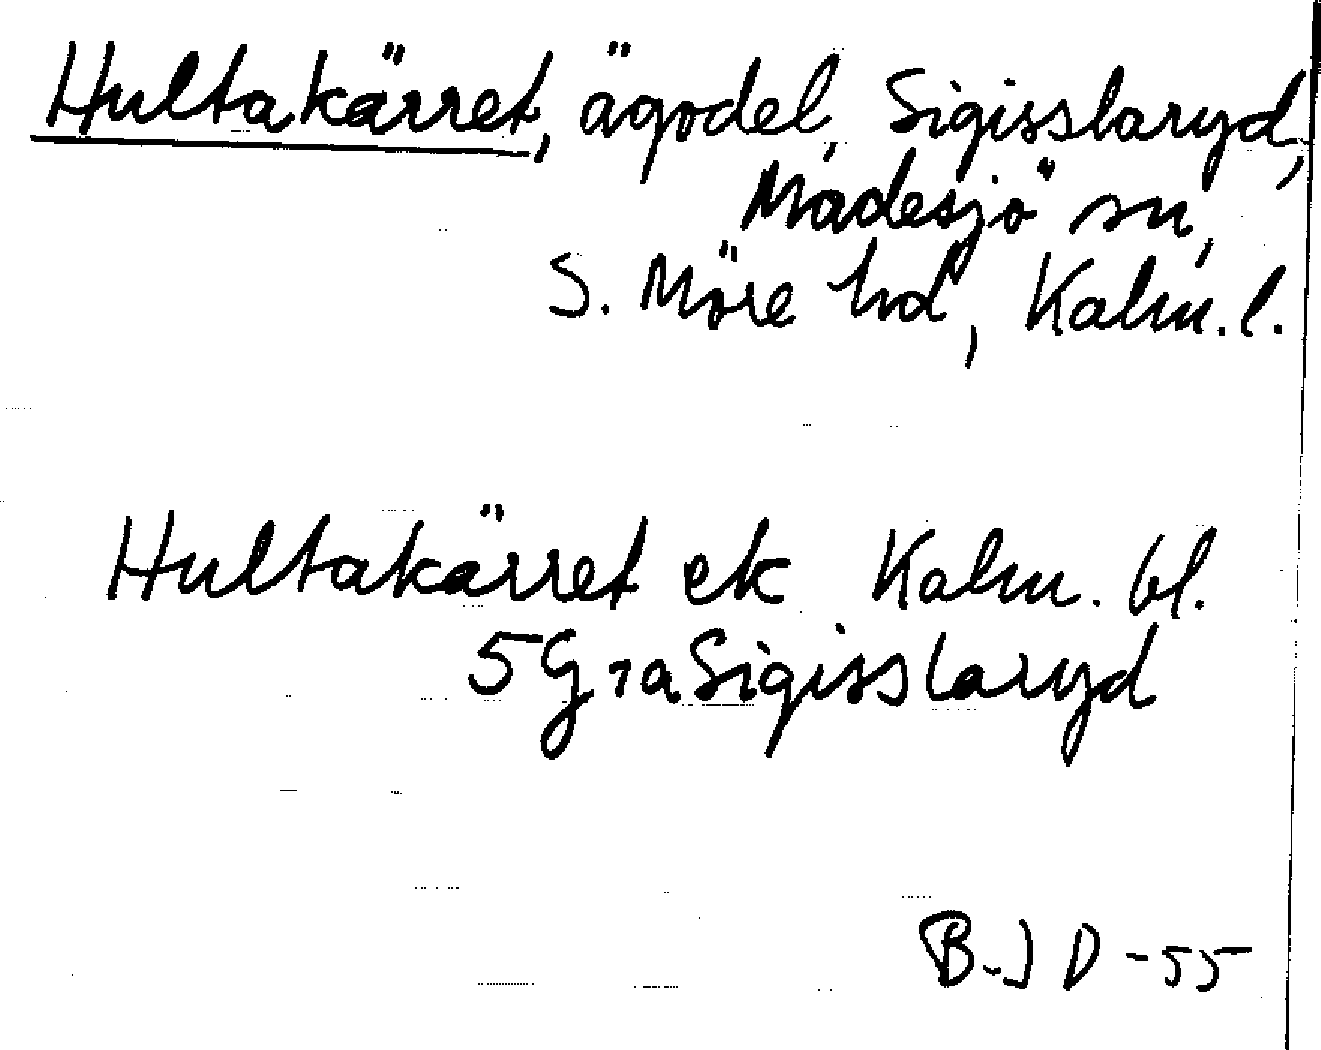 Hultakärret, ägodel, Sigisslaryd,
Madesjö sn,
S. Möre hd, Kalm. l.
Hultakärret ek Kalm. bl.
5G7a Sigisslaryd
B-J D -55